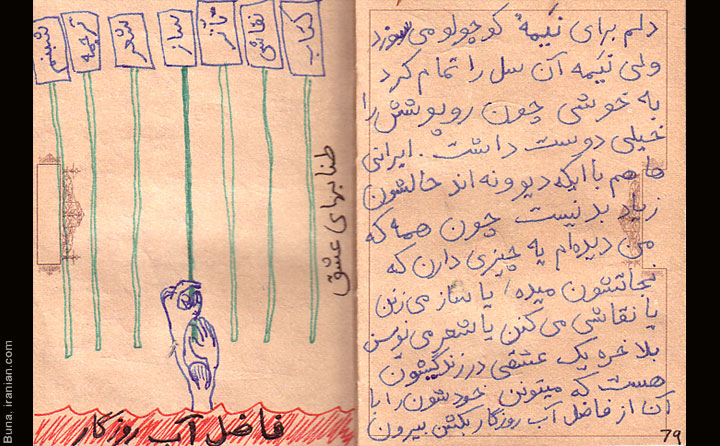 دلم برای نکیمهٔ کوچولو می سوزد
ولی نکیمه آن سل را تمام کرد
به خوشی چون روپوشش را
خیلی دوست داشت. ایرانی
ها هم با ایکه دیوونه اند حالشون
زیاد بد نیست چون همه که
من دیده‌ام یه چیزی دارن که
نجاتشون میده / یا ساز می زنن
یا نقاشی می کنن یا شعر می نویسن
بلاخره یک عشقی در زندگیشون
هست که میتونن خودشون را با
آن از فاضل آب روزگار بکشن بیرون
79
کتاب
نقاشی
تآتر
ساز
شعر
ترجمه
طنابهای عشق
فاضل آب روزگار
Buna, iranian.com